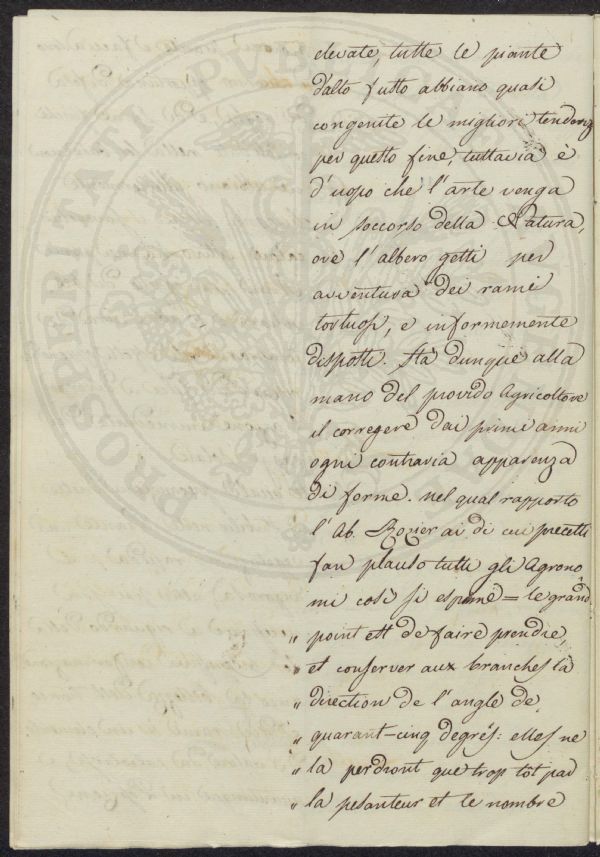 elevate, tutte le piante
d'alto fusto abbiano quasi
congenite le migliori tendenz
per questo fine, tuttavia è
d'uopo che l'arte venga
in soccorso della Natura,
ove l'albero getti per
avventura dei rami
tortuosi, e informemente
disposti. Sta dunque alla
mano del provido Agricoltore
il corregere dai primi anni
ogni contraria apparenza
di forme. nel qual rapporto
l'Ab. Rozier ai di cui precetti
fan plauso tutti gli Agrono
mi così si esprime = le grand
" point est de faire prendre,
" et conserver aux branches la
" direction de l'angle de
" quarant-cinq degrés: elles ne
" la perdront que trop tôt par
" la pesanteur et le nombre
PROSPERITATI PUBLICAE